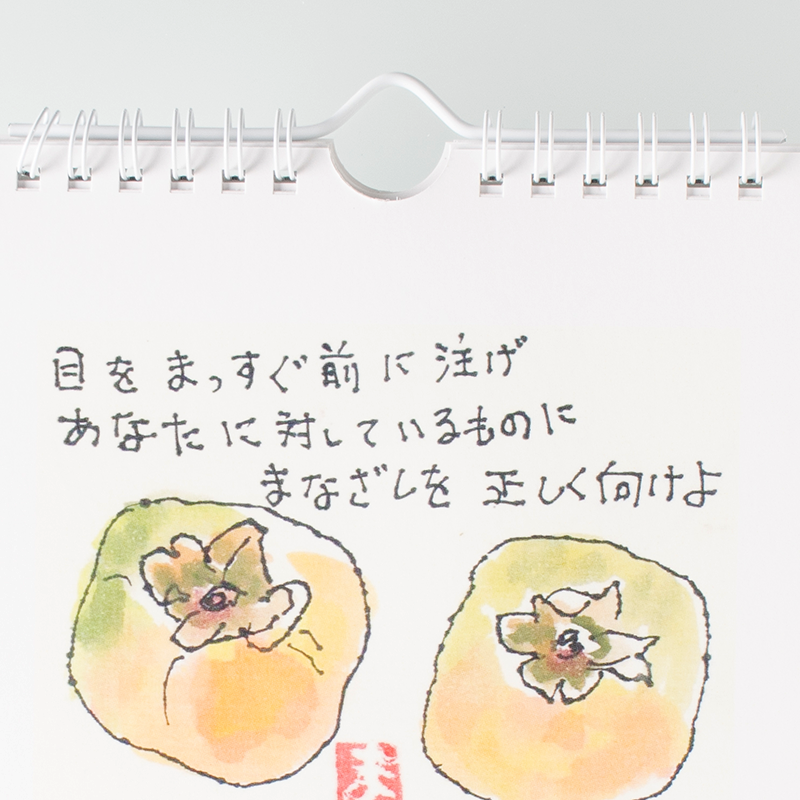 目をまっすぐ前に注げ
あなたに対しているものに
まなざしを 正しく向けよ